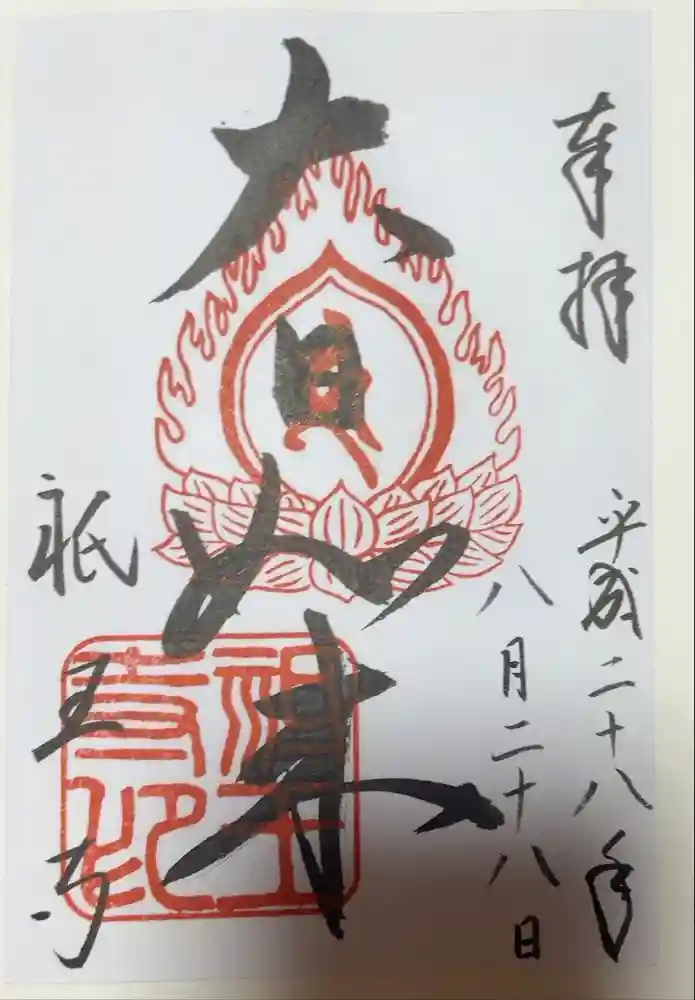 奉拝
平成二十八年
八月二十八日
大日如来
祇王寺
祇王寺印